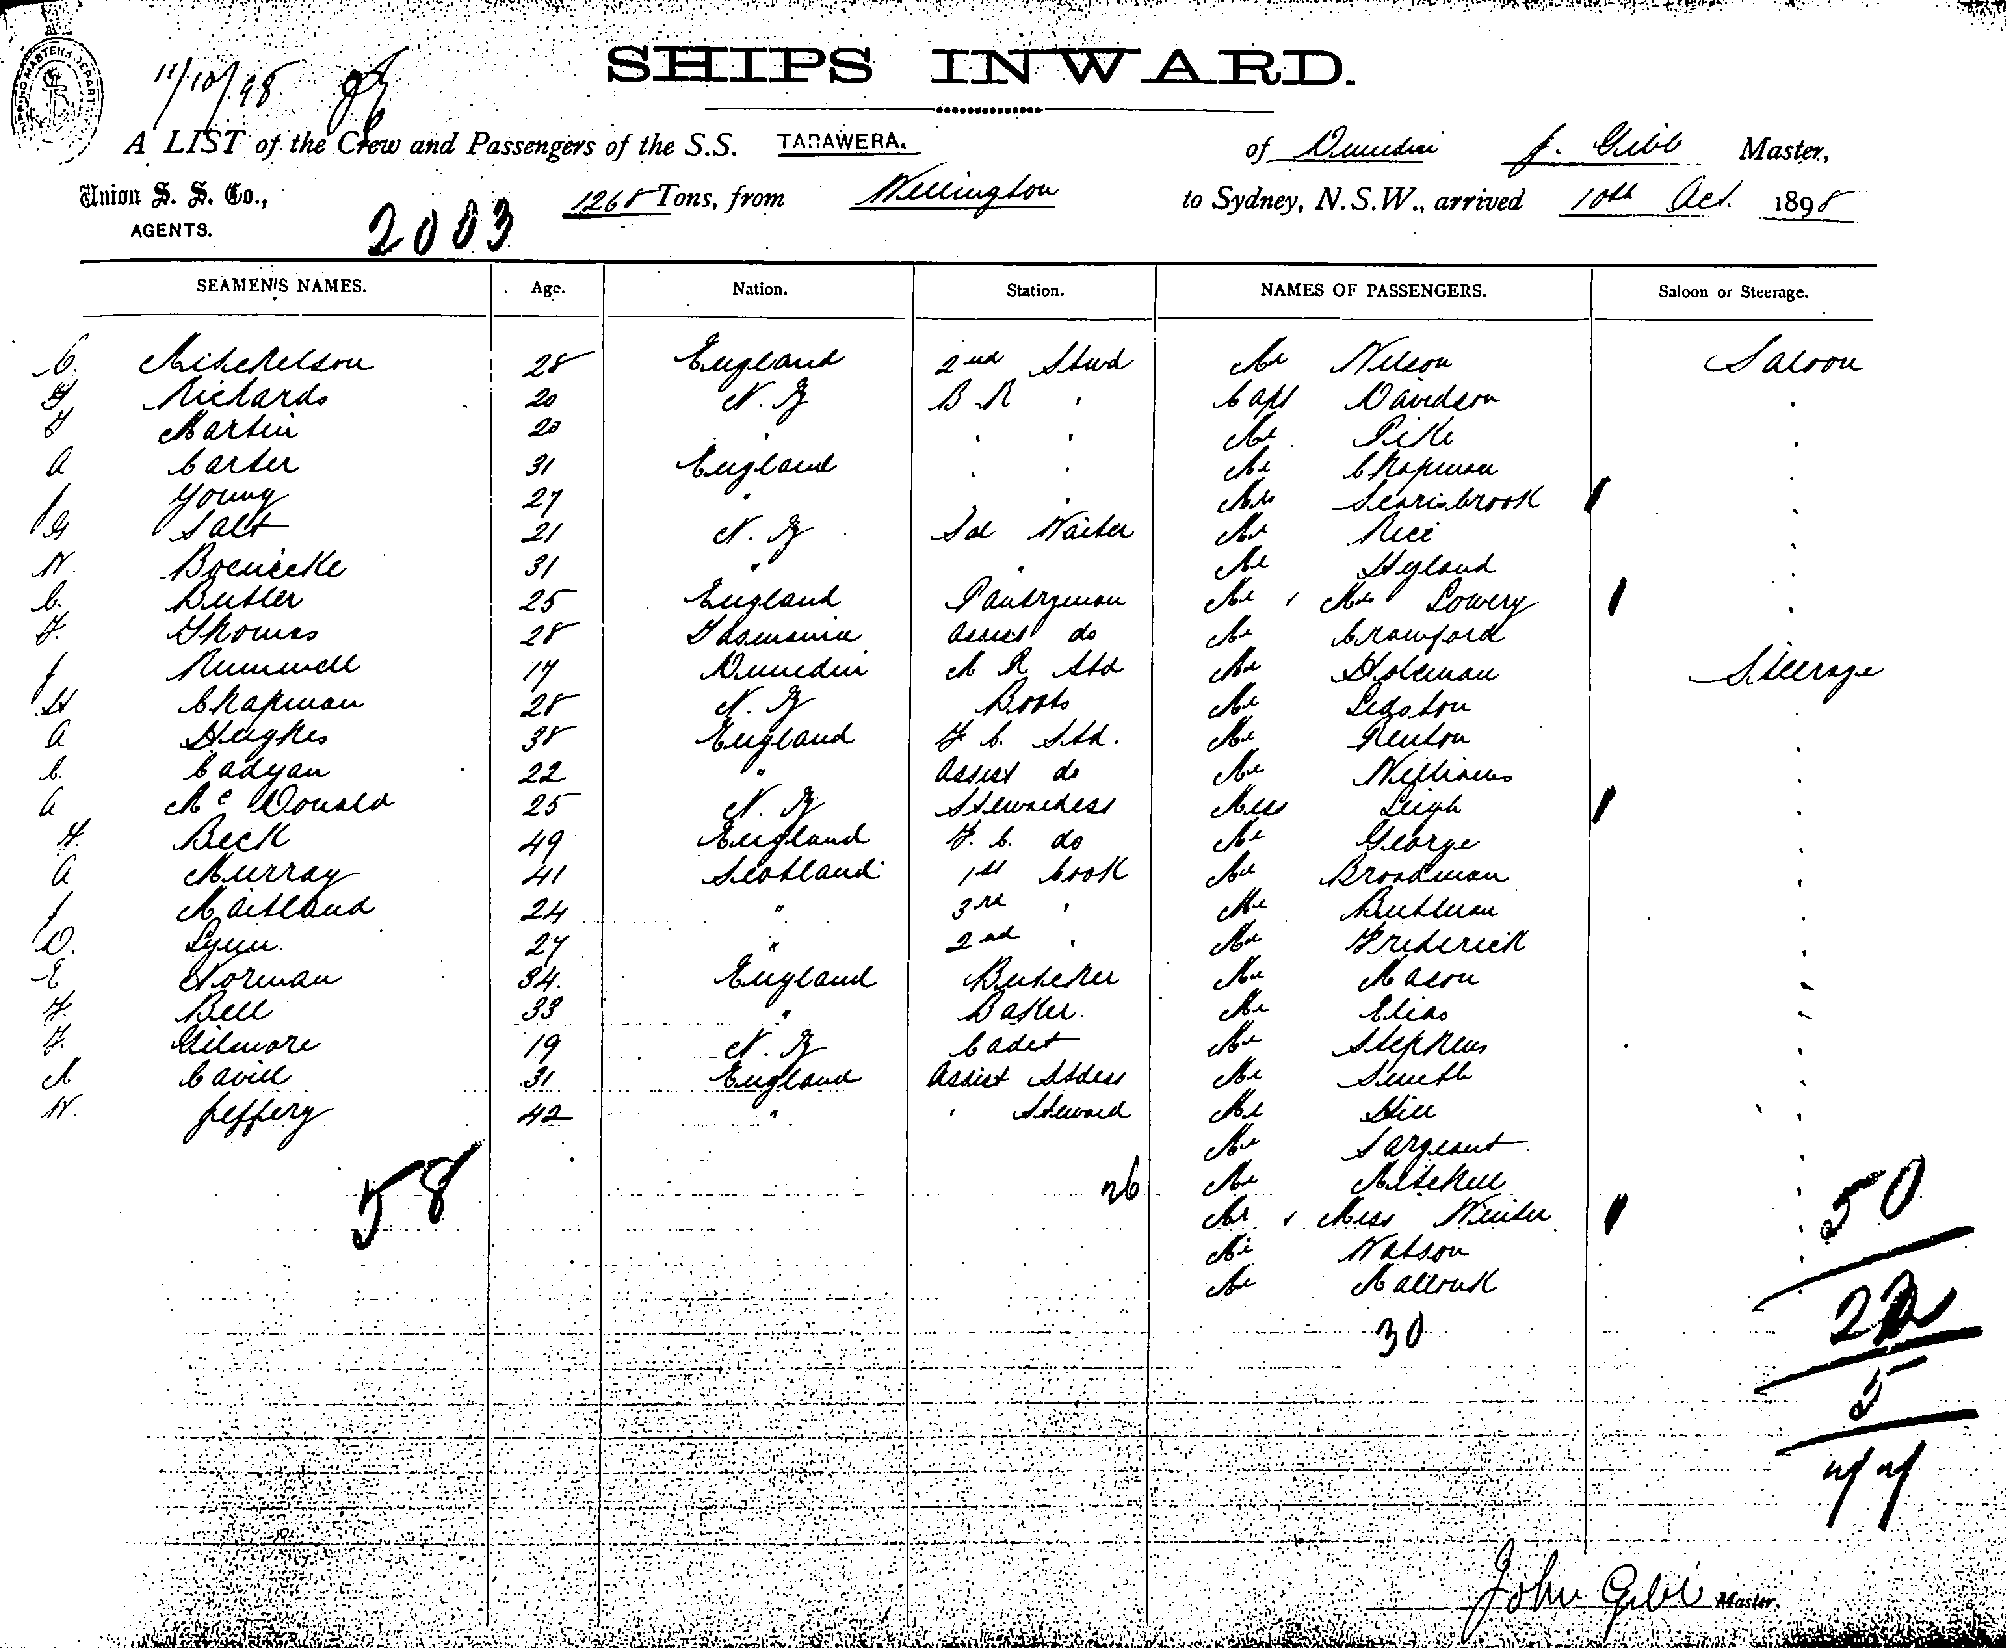 11/10/98
SHIPS INWARD.
A LIST of the Crew and Passengers of the S.S. TARAWERA. of Dunedin J. Gibb Master,
Union S. S. Co., AGENTS. 2003 1268 Tons, from Wellington to Sydney, N.S.W., arrived 10th Oct. 1898
SEAMEN'S NAMES. Age. Nation. Station. NAMES OF PASSENGERS. Saloon or Steerage.
C. Mitchelson 28 England 2nd Stwd Mr Nelson Saloon
F Richards 20 N. Z B R " Capt Davidson "
F Martin 20 " " " Mr Pike "
A Carter 31 England " " Mr Chapman "
J Young 27 " " Mrs Scarisbrook "
G Salt 21 N. Z Sal Waiter Mr Rice "
W. Boenicke 31 " " Mr Hyland "
C. Butler 25 England Pantryman Mr & Mrs Lowery "
F. Thomas 28 Tasmania Assist do Mr Crawford
J Rummell 17 Dunedin M R Std Mr Holeman Steerage
H Chapman 28 N. Z Boots Mr Legston "
A Hughes 38 England F C. Std. Mr Renton "
C. Cadyan 22 " Assist do Mr Williams "
A McDonald 25 N. Z Stewardess Miss Leigh "
F. Beck 49 England F. C. do Mr George "
A Murray 41 Scotland 1st Cook Mr Broadman "
J Maitland 24 " 3rd " Mr Buttman "
D. Lynn 27 " 2nd " Mr Frederick "
E Norman 34. England Butcher Mr Mason "
F. Bell 33 " Baker. Mr Elias "
F. Gilmore 19 N. Z Cadet Mr Stephens "
M Cavill 31 England Assist Stdess Mr Smith "
W. Jeffery 42 " " Steward Mr Hill "
Mr Sargeant "
58 26 Mr Mitchell " 50
Mr & Miss Winter "
Mr Watson "
Mr Mallouk
22
30
5
44
John Gibb Master.